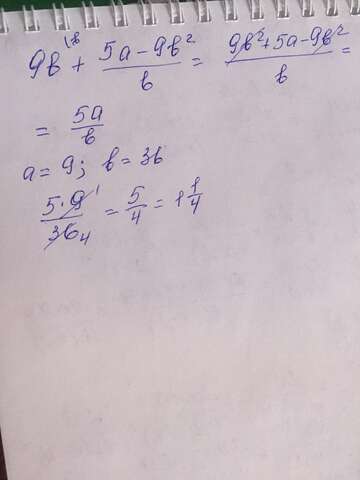 9b + \frac{5a-9b²}{b} = \frac{9b²+5a-9b²}{b} =
= \frac{5a}{b}
a = 9; b = 36
\frac{5·9}{36} = \frac{5}{4} = 1\frac{1}{4}